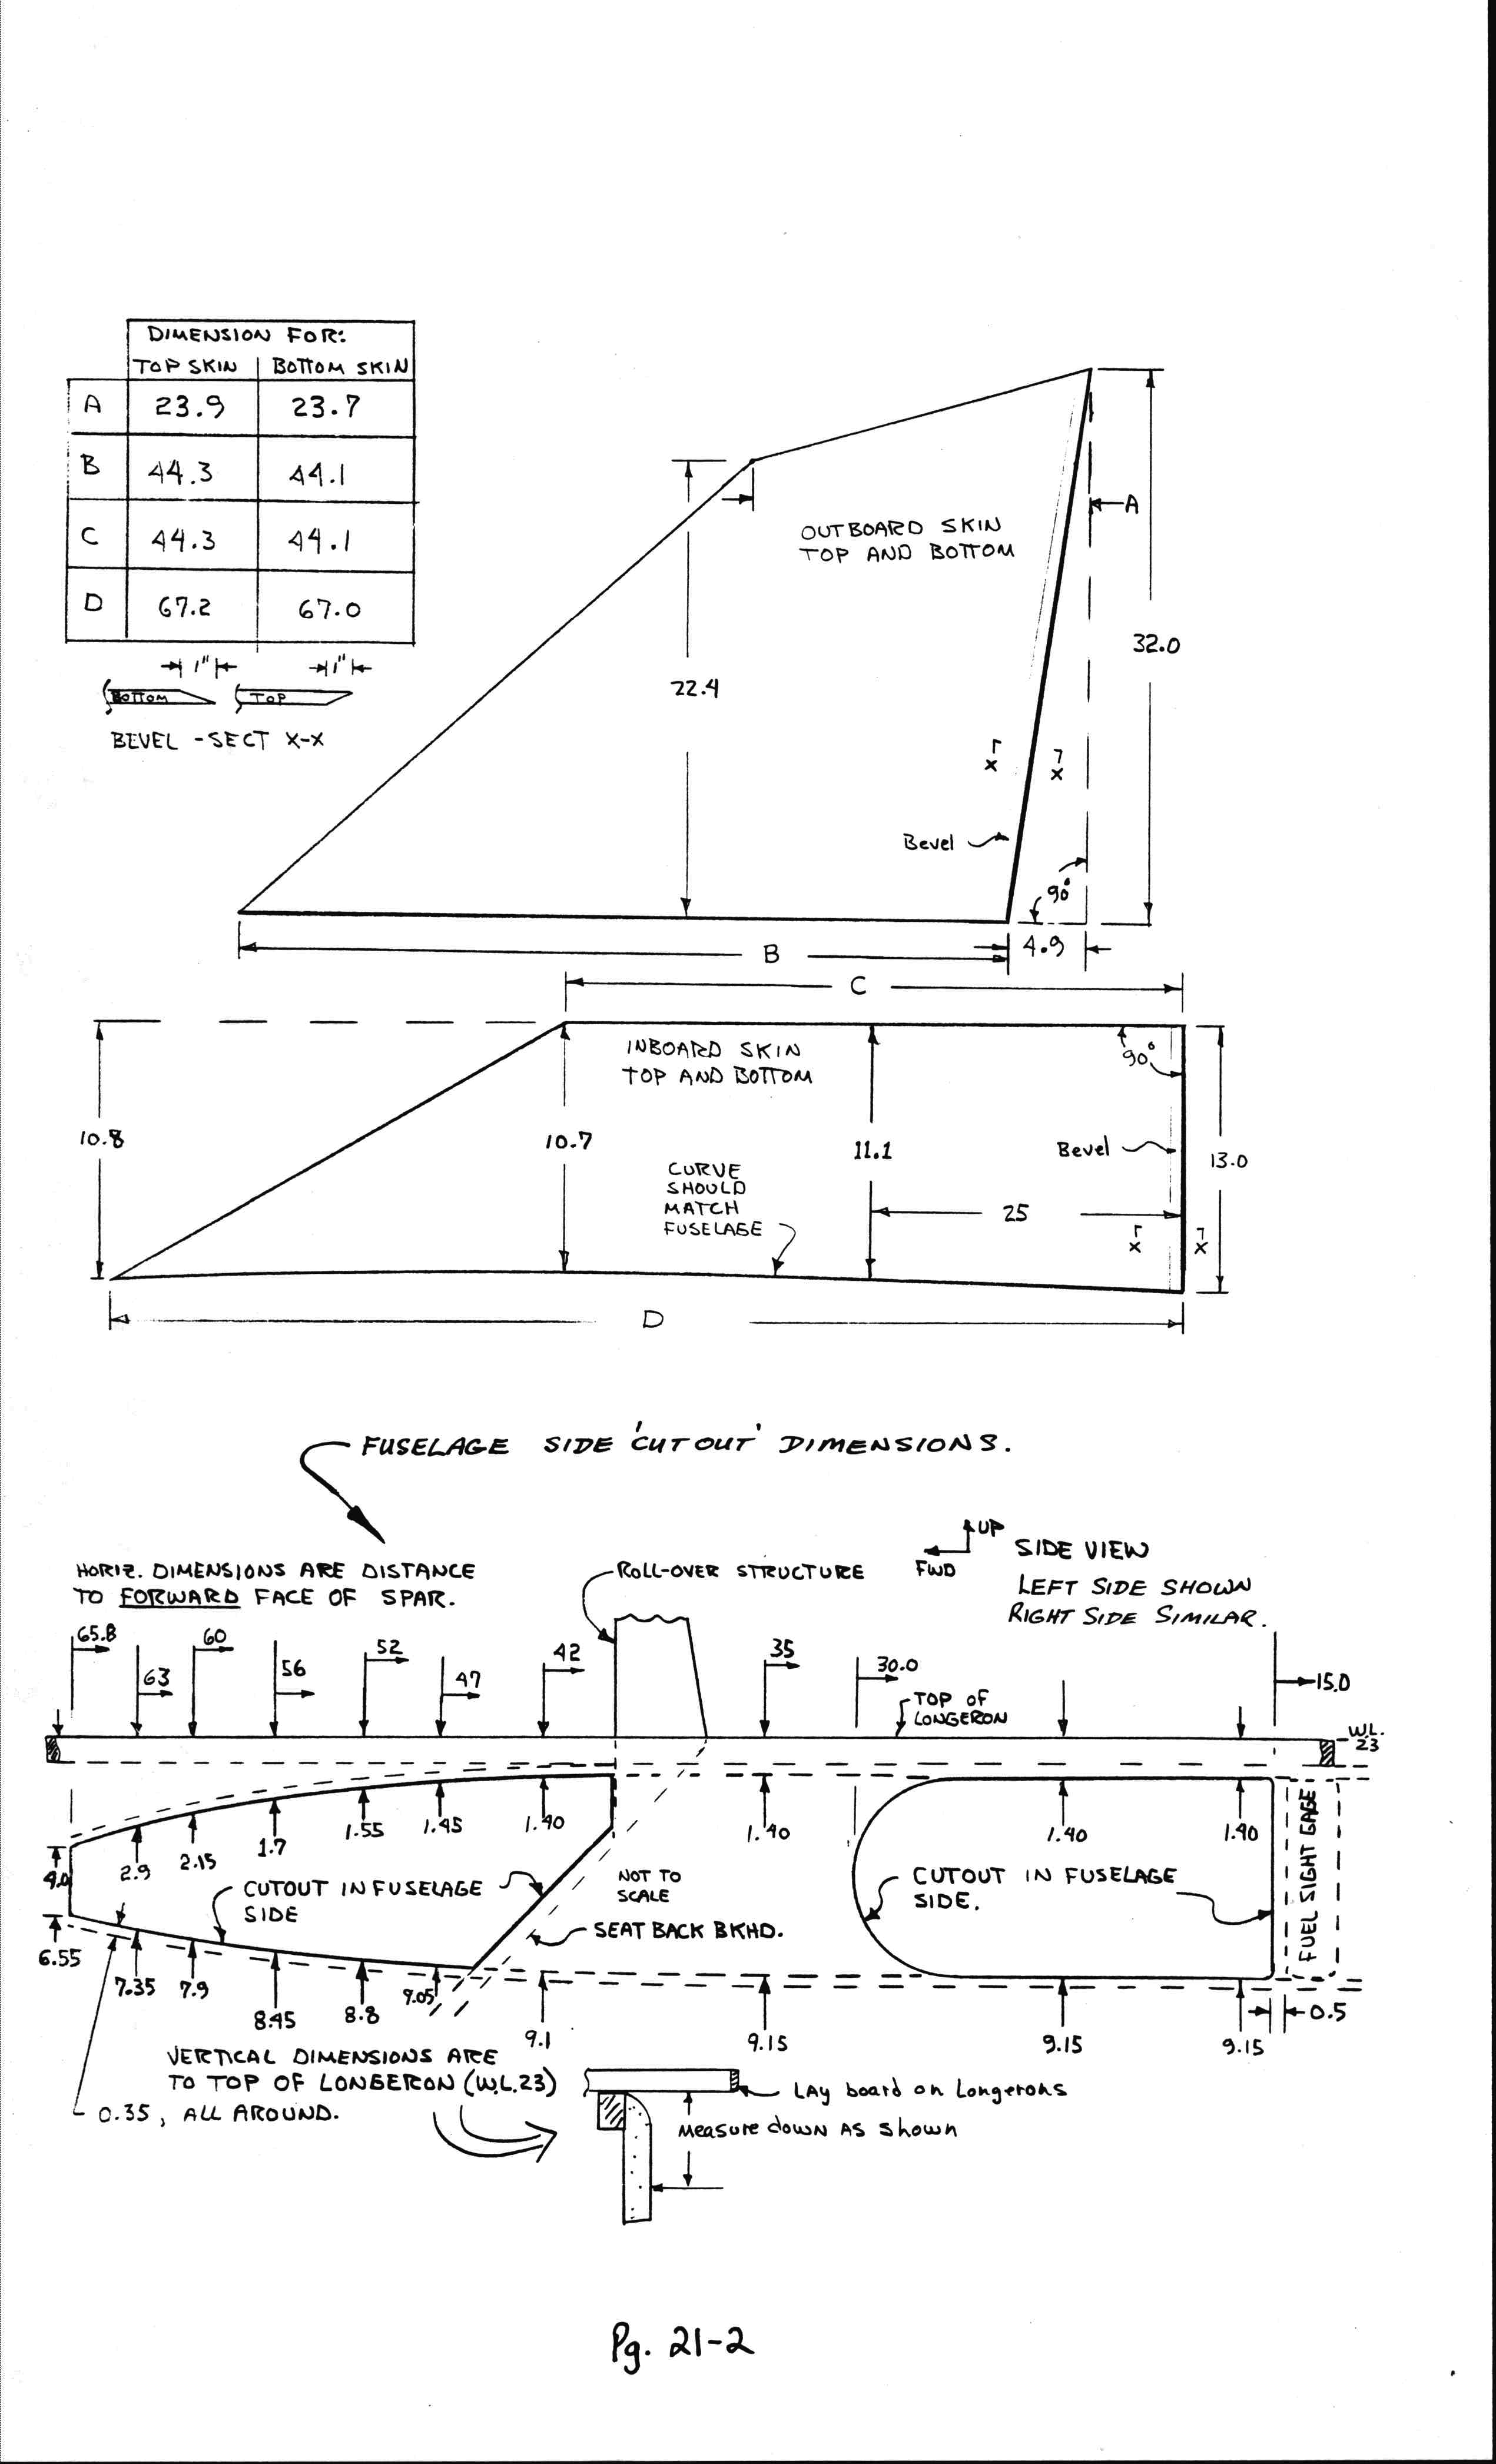 DIMENSION FOR:
TOP SKIN BOTTOM SKIN
A 23.9 23.7
B 44.3 44.1
C 44.3 44.1
D 67.2 67.0
1" 1"
BOTTOM TOP
BEVEL - SECT X-X
A
OUTBOARD SKIN
TOP AND BOTTOM
32.0
22.4
x x
Bevel
90°
B
4.9
C
INBOARD SKIN
TOP AND BOTTOM
90°
10.8
10.7
11.1
Bevel
13.0
CURVE
SHOULD
MATCH
FUSELAGE
25
x x
D
FUSELAGE SIDE 'CUTOUT' DIMENSIONS.
HORIZ. DIMENSIONS ARE DISTANCE
TO FORWARD FACE OF SPAR.
ROLL-OVER STRUCTURE
UP
FWD
SIDE VIEW
LEFT SIDE SHOWN
RIGHT SIDE SIMILAR.
65.8
63
60
56
52
47
42
35
30.0
15.0
TOP OF
LONGERON
W.L.
23
4.0
2.9
2.15
1.7
1.55
1.45
1.40
1.40
1.40
1.40
CUTOUT IN FUSELAGE
SIDE
NOT TO
SCALE
SEAT BACK BKHD.
CUTOUT IN FUSELAGE
SIDE.
FUEL SIGHT GAGE
6.55
7.35
7.9
8.45
8.8
9.05
9.1
9.15
9.15
9.15
0.5
VERTICAL DIMENSIONS ARE
TO TOP OF LONGERON (W.L.23)
0.35, ALL AROUND.
LAY board on Longerons
Measure down AS shown
Pg. 21-2